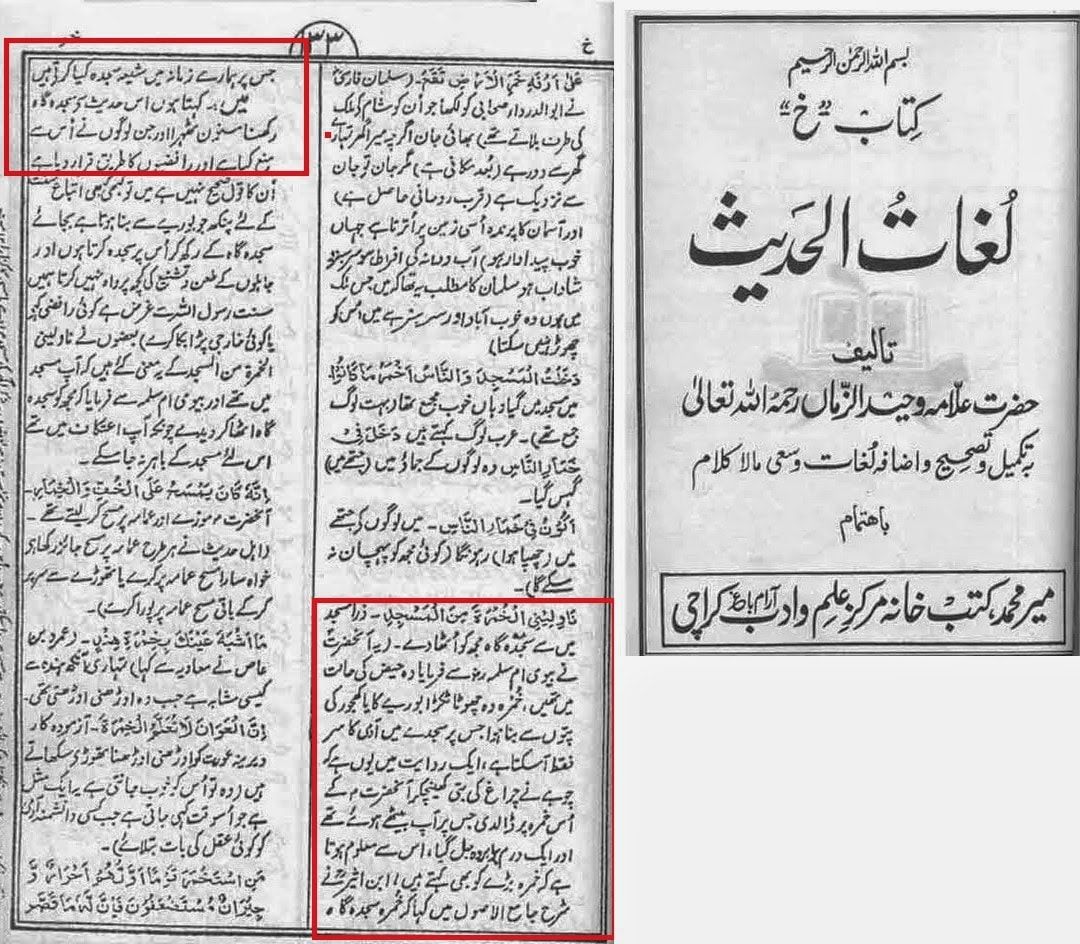 خ
۱۳۳
خمر
عَلٰى اَرْفَهِ خَمَرِ الْاَرْضِ تَقَعُ۔ (سلمان فارسیؓ
نے ابو الدرداء صحابی کو لکھا جو اُن کو شام کے ملک
کی طرف بلاتے تھے) بھائی جان اگرچہ میرا گھر تمہارے
گھر سے دور ہے (بُعد مکانی ہے) مگر جان تو جان
سے نزدیک ہے (قرب روحانی حاصل ہے)
اور آسمان کا پرندہ اُسی زمین پر اُترتا ہے جہاں
خوب پیداوار ہو) آب و دانہ کی افراط ہو سرسبز و
شاداب ہو سلمان کا مطلب یہ تھا کہ میں جس ملک
میں ہوں وہ خوب آباد اور سرسبز ہے میں اُس کو
چھوڑ نہیں سکتا)
دَخَلْتُ الْمَسْجِدَ وَالنَّاسُ اَخْمَرُ مَا كَانُوْا
میں مسجد میں گیا وہاں خوب مجمع تھا (بہت لوگ
جمع تھے)۔ عرب لوگ کہتے ہیں دَخَلَ فِيْ
خُمَارِ النَّاسِ وہ لوگوں کے جماؤ میں (جتھے میں)
گھس گیا۔
اَكُوْنُ فِيْ خُمَارِ النَّاسِ۔ میں لوگوں کے جتھے
میں (چھپا ہوا) رہونگا (کوئی مجھ کو پہچان نہ
سکے گا)۔
نَاوِلِيْنِى الْخُمْرَةَ مِنَ الْمَسْجِدِ۔ ذرا مسجد
میں سے سجدہ گاہ مجھ کو اُٹھا دے۔ (یہ آنحضرتؐ
نے بیوی ام سلمہ رضؓ سے فرمایا وہ حیض کی حالت
میں تھیں، خُمرہ وہ چھوٹا ٹکڑا بوریے کا یا کھجور کی
پتّوں سے بنا ہوا جس پر سجدے میں آدمی کا سر
فقط آسکتا ہے، ایک روایت میں یوں ہے کہ
چوہے نے چراغ کی بتی کھینچکر آنحضرت م کے
اُس خمرہ پر ڈالدی جس پر آپ بیٹھے ہوئے تھے
اور ایک درم برابر وہ جل گیا، اس سے معلوم ہوتا
ہے کہ خمرہ بڑے کو بھی کہتے ہیں، ابن اثیرؒ نے
شرح جامع الاصول میں کہا کہ خمرہ سجدہ گاہ
جس پر ہمارے زمانہ میں شیعہ سجدہ کیا کرتے ہیں
میں :۔ کہتا ہوں اس حدیث سے سجدہ گاہ
رکھنا مسنون ٹھہرا اور جن لوگوں نے اُس سے
منع کیا ہے اور رافضیوں کا طریق قرار دیا ہے
اُن کا قول صحیح نہیں ہے میں تو کبھی کبھی اتباع سنت
کے لئے پنکھ جو بوریے سے بنا ہوتا ہے بجائے
سجدہ گاہ کے رکھ کر اُس پر سجدہ کرتا ہوں اور
جاہلوں کے طعن و تشنیع کی کچھ پرواہ نہیں کرتا ہمیں
سنت رسول اللہ سے غرض ہے کوئی رافضی کہے
یا کوئی خارجی پڑا بکا کرے) بعضوں نے ناولینی
الخمرۃ من المسجد کے یہ معنی کئے ہیں کہ آپ مسجد
میں تھے اور بیوی ام سلمہ سے فرمایا کہ مجھ کو سجدہ
گاہ اٹھا کر دیدے چونکہ آپ اعتکاف میں تھے
اس لئے مسجد کے باہر نہ جا سکے۔
اِنَّهٗ كَانَ يَمْسَحُ عَلَى الْخُفِّ وَالْخِمَارِ۔
آنحضرت م موزے اور عمامہ پر مسح کر لیتے تھے۔
(اہل حدیث نے ہر طرح عمامہ پر مسح جائز رکھا ہی
خواہ سارا مسح عمامہ پر کرے یا تھوڑے سے سر پر
کر کے باقی مسح عمامہ پر پورا کرے)۔
مَا اَشْبَهَ عَيْنَكَ بِخِمْرَةِ هِنْدٍ۔ (عمرو بن
عاص نے معاویہ سے کہا) تمہاری آنکھ ہندہ سے
کیسی مشابہ ہے جب وہ اوڑھنی اوڑھتی تھی۔
اِنَّ الْعَوَانَ لَا تُعَلَّمُ الْخِمْرَةَ۔ آزمودہ کار
دیرینہ عورت کو اوڑھنی اوڑھنا تھوڑی سکھاتے
ہیں (وہ تو اُس کو خوب جانتی ہے یہ ایک مثل
ہے جو اُسوقت کہی جاتی ہے جب کسی دانشمند آدمی
کو کوئی عقل کی بات بتلائے)۔
مَنِ اسْتَخْمَرَ قَوْمًا اَوَّلُهُمْ اَحْرَارٌ وَّ
جِيْرَانٌ مُسْتَضْعَفُوْنَ فَاِنَّ لَهٗ مَا قَصَرَ
بسم اللہ الرحمٰن الرحیم
کتاب "خ"
لُغاتُ الحَدیث
تالیف
حضرت علّامہ وحید الزّماں رحمہٗ اللہ تعالیٰ
بہ تکمیل و تصحیح و اضافہ لُغات وسعی مالا کلام
باهتمام
میر محمد، کتب خانہ مرکز علم و ادب آرام باغ کراچی